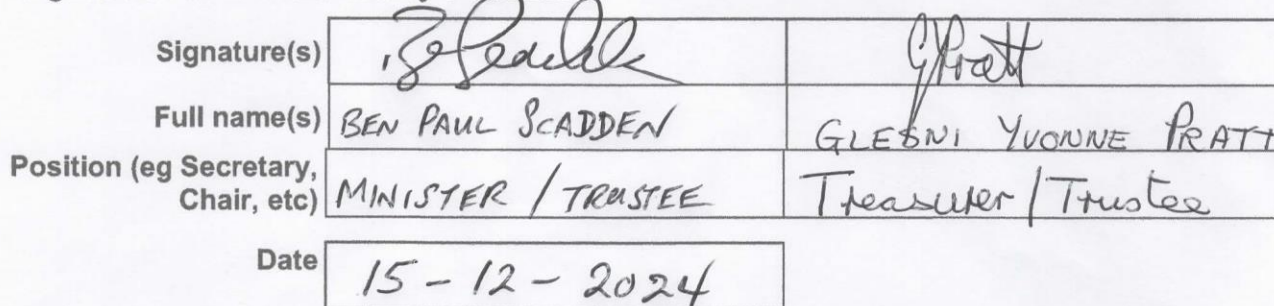 Signature(s)
Full name(s) BEN PAUL SCADDEN GLESNI YVONNE PRATT
Position (eg Secretary,
Chair, etc) MINISTER / TRUSTEE Treasurer / Trustee
Date 15 - 12 - 2024